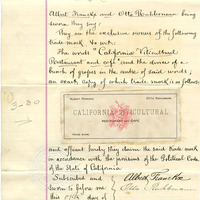 Albert Francke and Otto Rathhmann being
sworn they say:
They are the exclusive owners of the following
trade mark to wit:
The words "California Viticultural
Restaurant and café" and the device of a
bunch of grapes in the centre of said words;
an exact copy of which trade mark is as follows:
CALIFORNIA VITICULTURAL
RESTAURANT AND CAFE
TRADE MARK
and affiant hereby they claim the said trade mark
in accordance with the provisions of the Political Code
of the State of California
Subscribed and
sworn to before me
this day of
Albert Francke
Otto